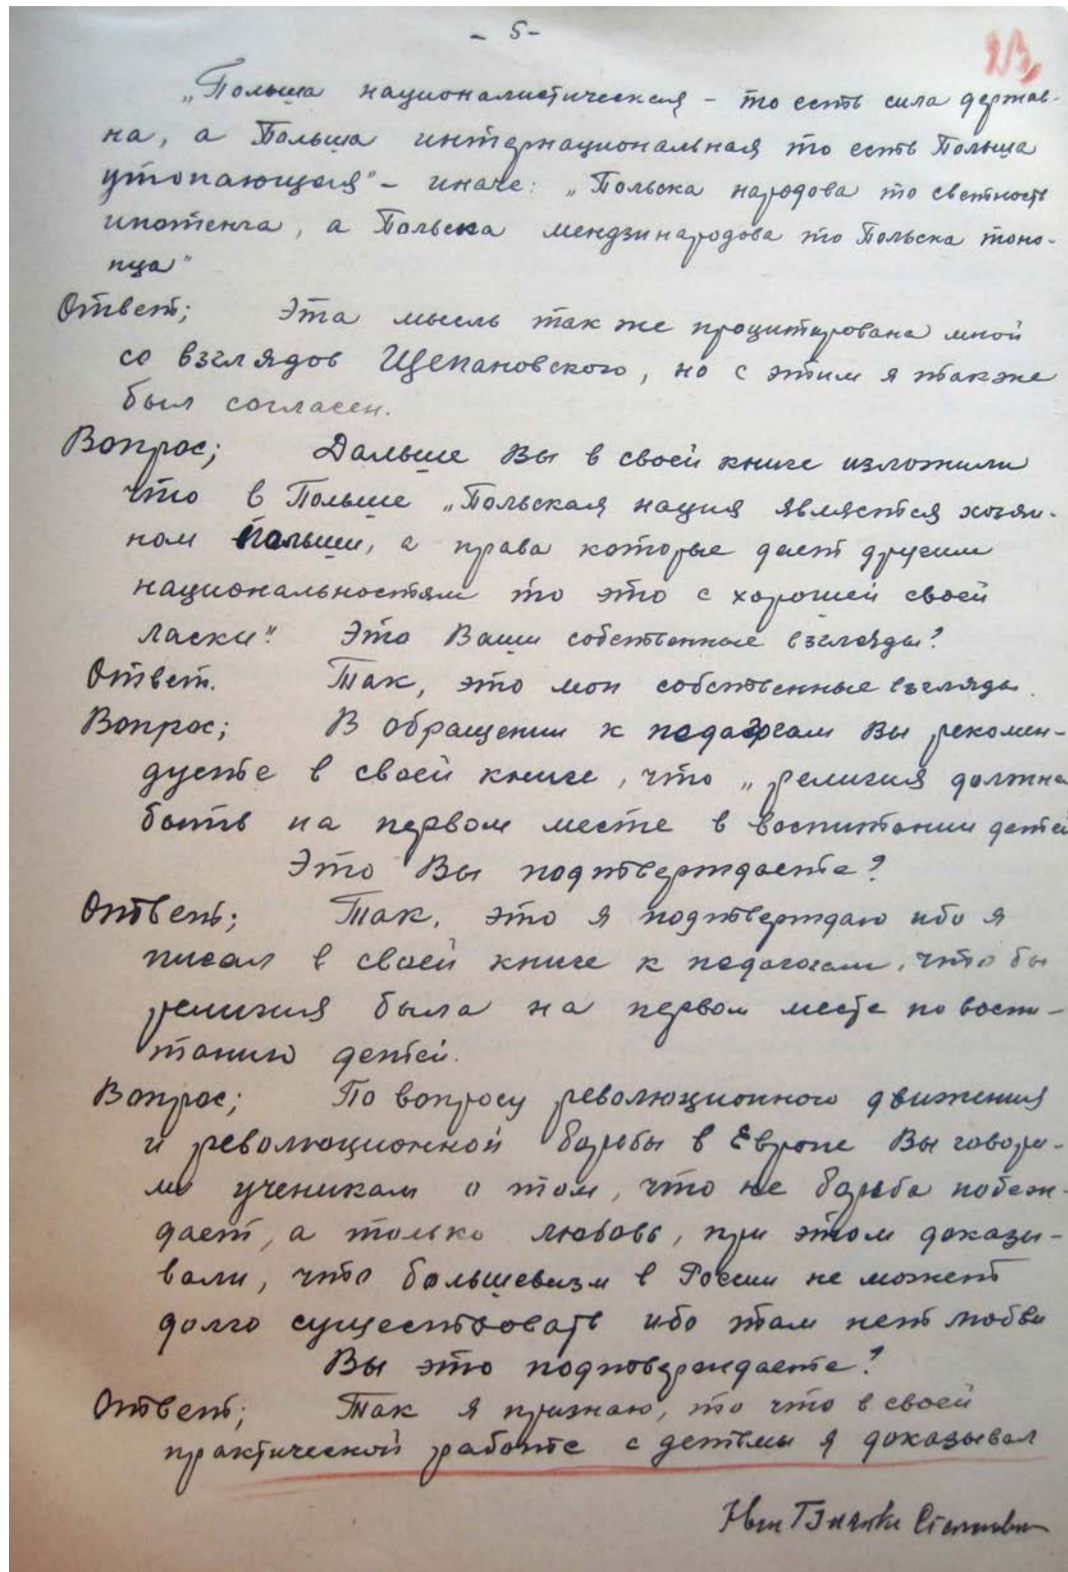 - 5 -
23
„Польша националистическая - то есть сила держав-
на, а Польша интернациональная то есть Польша
утопающая" - иначе: „Польска народова то светность
ипотенча, а Польска мендзинародова то Польска тоно-
нца"
Ответ; Эта мысль так же процитирована мной
со взглядов Щепановского, но с этим я также
был согласен.
Вопрос; Дальше Вы в своей книге изложили
что в Польше „Польская нация является хозяи-
ном Польши, а права которые дает другим
национальностям то это с хорошей своей
ласки". Это Ваши собственные взгляды?
Ответ. Так, это мои собственные взгляды.
Вопрос; В обращении к педагогам Вы рекомен-
дуете в своей книге, что „религия должна
быть на первом месте в воспитании детей
Это Вы подтверждаете?
Ответ; Так, это я подтверждаю ибо я
писал в своей книге к педагогам, что бы
религия была на первом месте по воспи-
танию детей.
Вопрос; По вопросу революционного движения
и революционной борьбы в Европе Вы говори-
ли ученикам о том, что не борьба побеж-
дает, а только любовь, при этом доказы-
вали, что большевизм в России не может
долго существовать ибо там нет любви
Вы это подтверждаете?
Ответ; Так я признаю, то что в своей
практической работе с детьмы я доказывал